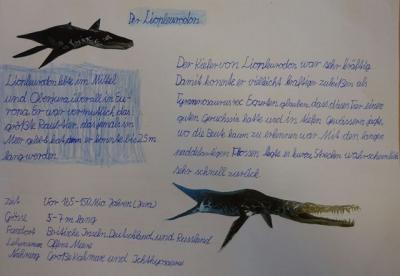 Der Lionleurodon
Lionleurodon lebte im Mittel
und Oberjura überall in Eu-
ropa. Er war vermutlich das
größte Raubtier, das jemals im
Meer gelebt hat, denn er konnte bis 25m
lang werden.
Der Kiefer von Lionleurodon war sehr kräftig.
Damit konnte er vielleicht kräftiger zubeißen als
Tyrannosaurus rex. Experten glauben, dass dieses Tier einen
guten Geruchssin hatte und in tiefen Gewässern jagte,
wo die Beute kaum zu erkennen war. Mit den langen
paddelartigen Flossen legte er kurze Strecken wahrscheinlich
sehr schnell zurück.
Zeit Vor 165-150 Mio. Jahren (Jura)
Grösse 5-7 m lang
Fundort Britische Inseln, Deutschland und Russland
Lebensraum Offene Meere
Nahrung Große Kalmare und Ichthyosaurier